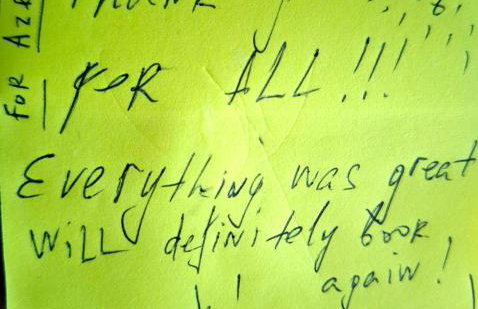 For
FOR ALL!!!
Everything was great
WiLL definitely book
again!